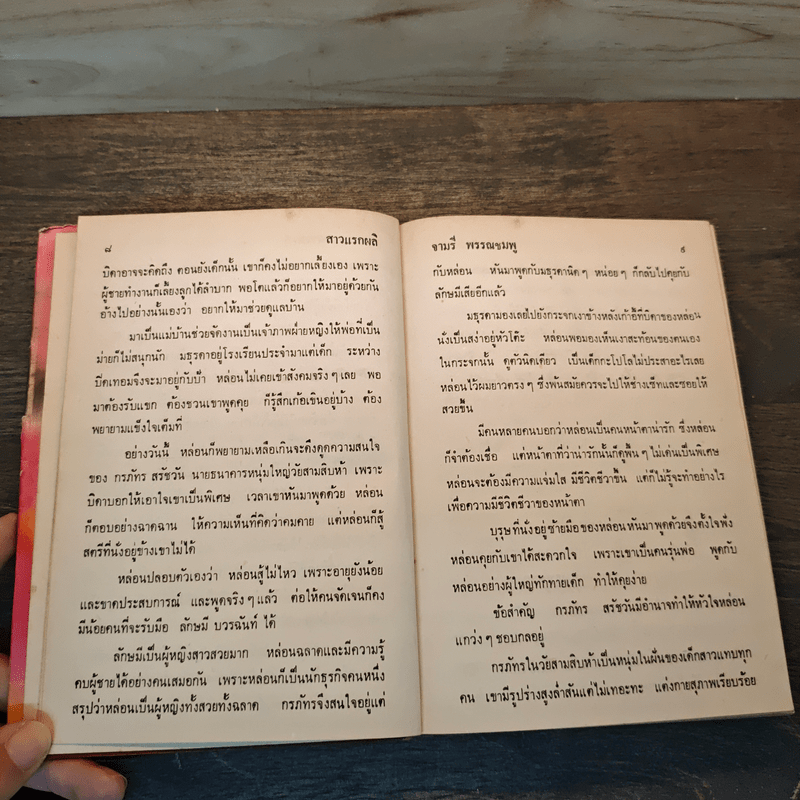 ๘ สาวแรกผลิ
บิดาอาจจะคิดถึง ตอนยังเด็กนั้น เขาก็คงไม่อยากเลี้ยงเอง เพราะ
ผู้ชายทำงานก็เลี้ยงลูกได้ลำบาก พอโตแล้วก็อยากให้มาอยู่ด้วยกัน
อ้างไปอย่างนั้นเองว่า อยากให้มาช่วยดูแลบ้าน
มาเป็นแม่บ้านช่วยจัดงานเป็นเจ้าภาพฝ่ายหญิงให้พ่อที่เป็น
ม่ายก็ไม่สนุกนัก มธุรดาอยู่โรงเรียนประจำมาแต่เด็ก ระหว่าง
ปิดเทอมจึงจะมาอยู่กับป้า หล่อนไม่เคยเข้าสังคมจริง ๆ เลย พอ
มาต้องรับแขก ต้องชวนเขาพูดคุย ก็รู้สึกเก้อเขินอยู่บ้าง ต้อง
พยายามแข็งใจเต็มที่
อย่างวันนี้ หล่อนก็พยายามเหลือเกินจะดึงดูดความสนใจ
ของ กรภัทร สรัชวัน นายธนาคารหนุ่มใหญ่วัยสามสิบห้า เพราะ
บิดาบอกให้เอาใจเขาเป็นพิเศษ เวลาเขาหันมาพูดด้วย หล่อน
ก็ตอบอย่างฉาดฉาน ให้ความเห็นที่คิดว่าคมคาย แต่หล่อนก็สู้
สตรีที่นั่งอยู่ข้างเขาไม่ได้
หล่อนปลอบตัวเองว่า หล่อนสู้ไม่ไหว เพราะอายุยังน้อย
และขาดประสบการณ์ และพูดจริง ๆ แล้ว ต่อให้คนจัดเจนก็คง
มีน้อยคนที่จะรับมือ ลักษมี บวรฉันท์ ได้
ลักษมีเป็นผู้หญิงสาวสวยมาก หล่อนฉลาดและมีความรู้
คบผู้ชายได้อย่างคนเสมอกัน เพราะหล่อนก็เป็นนักธุรกิจคนหนึ่ง
สรุปว่าหล่อนเป็นผู้หญิงทั้งสวยทั้งฉลาด กรภัทรจึงสนใจอยู่แต่
จามรี พรรณชมพู ๙
กับหล่อน หันมาพูดกับมธุรดานิด ๆ หน่อย ๆ ก็กลับไปคุยกับ
ลักษมีเสียอีกแล้ว
มธุรดามองเลยไปยังกระจกเงาข้างหลังเก้าอี้ที่บิดาของหล่อน
นั่งเป็นสง่าอยู่หัวโต๊ะ หล่อนพอมองเห็นเงาสะท้อนของตนเอง
ในกระจกนั้น ดูตัวนิดเดียว เป็นเด็กกะโปโลไม่ประสาอะไรเลย
หล่อนไว้ผมยาวตรง ๆ ซึ่งพ้นสมัยควรจะไปให้ช่างเซ็ทและซอยให้
สวยขึ้น
มีคนหลายคนบอกว่าหล่อนเป็นคนหน้าตาน่ารัก ซึ่งหล่อน
ก็จำต้องเชื่อ แต่หน้าตาที่ว่าน่ารักนั้นก็ดูพื้น ๆ ไม่เด่นเป็นพิเศษ
หล่อนจะต้องมีความแจ่มใส มีชีวิตชีวาขึ้น แต่ก็ไม่รู้จะทำอย่างไร
เพื่อความมีชีวิตชีวาของหน้าตา
บุรุษที่นั่งอยู่ซ้ายมือของหล่อนหันมาพูดด้วยจึงตั้งใจฟัง
หล่อนคุยกับเขาได้สะดวกใจ เพราะเขาเป็นคนรุ่นพ่อ พูดกับ
หล่อนอย่างผู้ใหญ่ทักทายเด็ก ทำให้คุยง่าย
ข้อสำคัญ กรภัทร สรัชวันมีอำนาจทำให้หัวใจหล่อน
แกว่ง ๆ ชอบกลอยู่
กรภัทรในวัยสามสิบห้าเป็นหนุ่มในฝันของเด็กสาวแทบทุก
คน เขามีรูปร่างสูงล่ำสันแต่ไม่เทอะทะ แต่งกายสุภาพเรียบร้อย